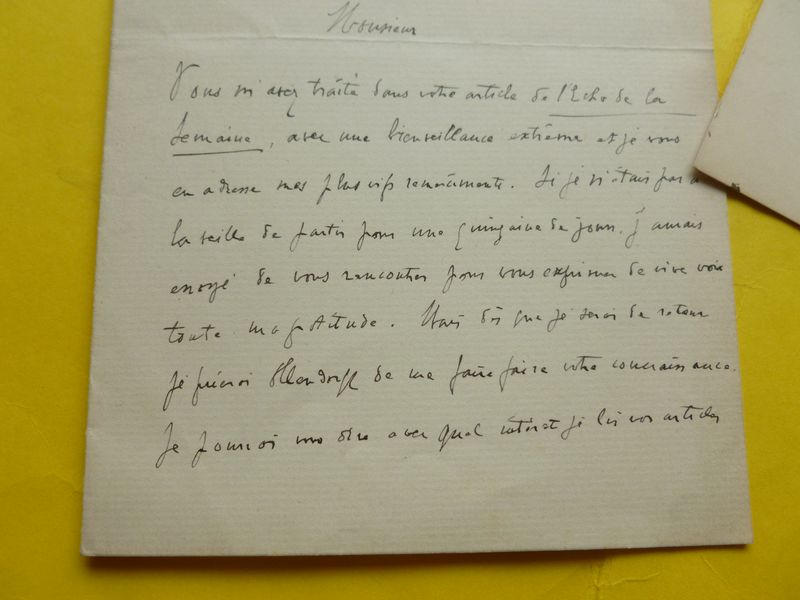 Monsieur
Vous m'avez traité dans votre article de l'Echo de la
Semaine, avec une bienveillance extrême et je vous
en adresse mes plus vifs remerciements. Si je n'étais pas à
la veille de partir pour une quinzaine de jours, j'aurais
essayé de vous rencontrer pour vous exprimer de vive voix
toute ma gratitude. Mais dès que je serai de retour
je prierai Ollendorff de me faire faire votre connaissance.
Je pourrai vous dire avec quel intérêt je lis vos articles